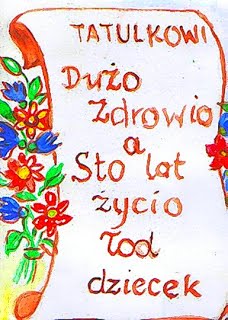 TATULKOWI
Dużo
Zdrowio
a
Sto lat
życio
łod
dziecek